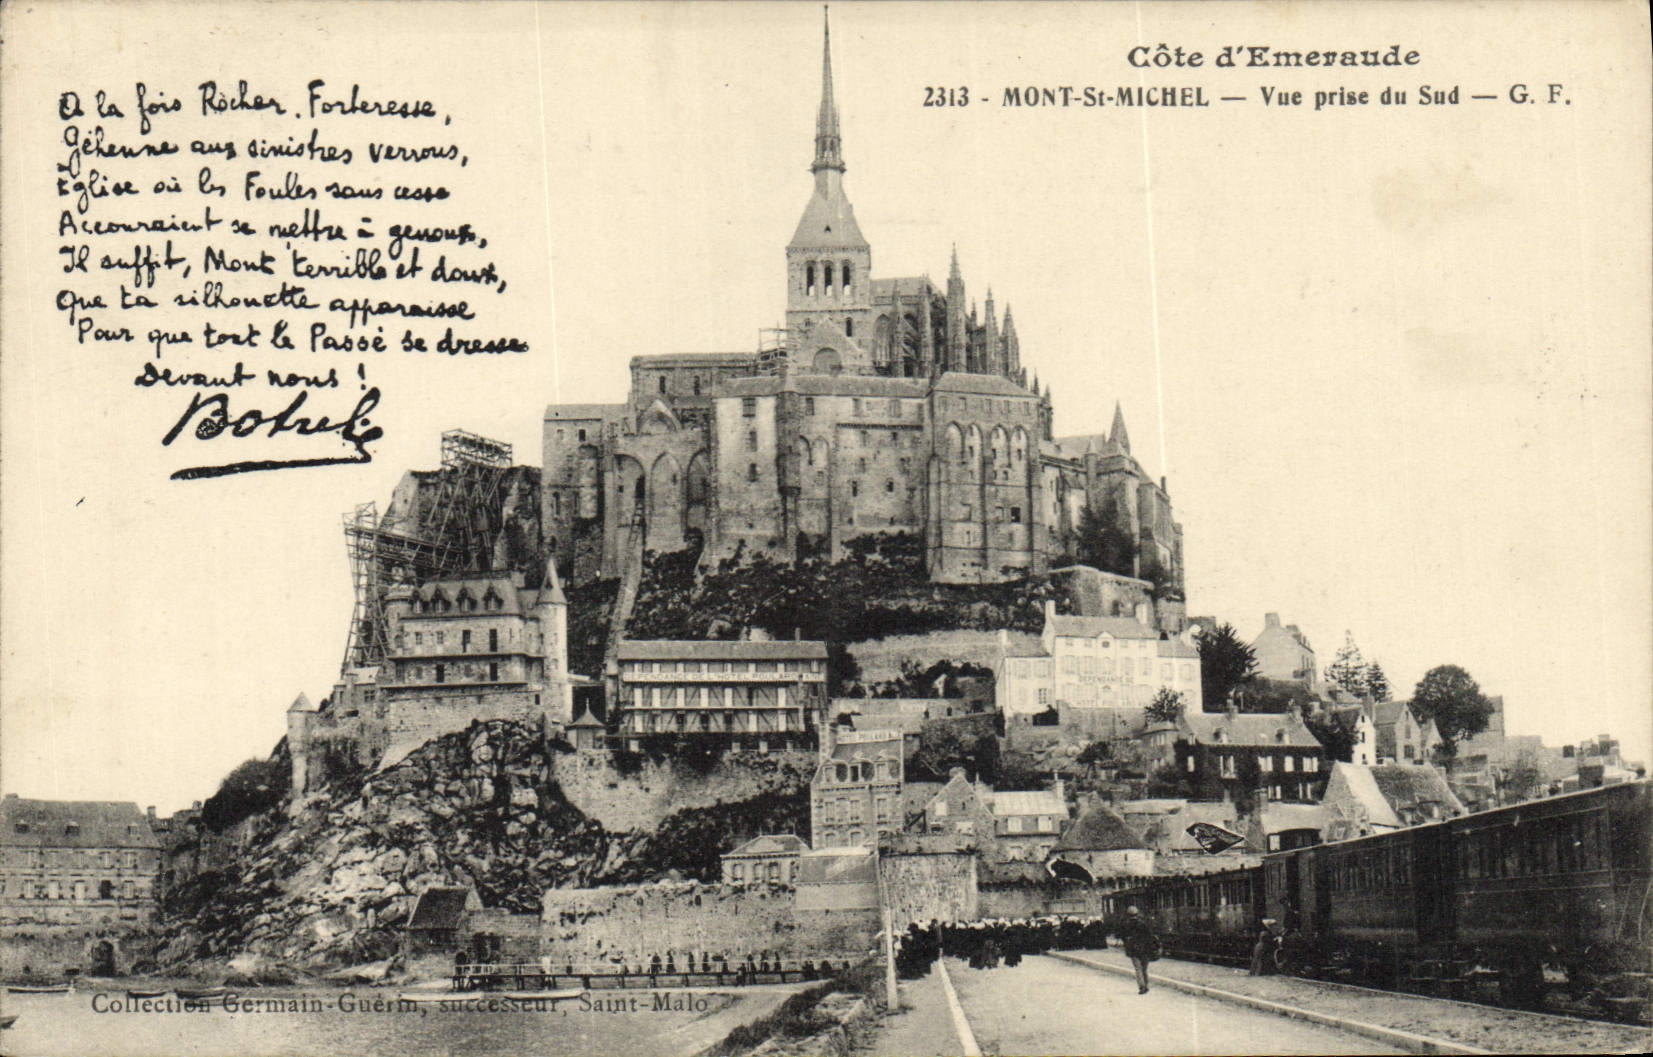 Côte d'Emeraude
2313 - MONT-St-MICHEL — Vue prise du Sud — G. F.
A la fois Rocher. Forteresse,
Géhenne aux sinistres verrous,
Église où les Foules sans cesse
Accouraient se mettre à genoux,
Il suffit, Mont terrible et doux,
Que ta silhouette apparaisse
Pour que tout le Passé se dresse
Devant nous !
Botrel
PENDANCE DE L'HOTEL POULARD A
DEPENDANCE DE
HOTEL POULARD
HOTEL POULARD A
Collection Germain-Guérin, successeur, Saint-Malo